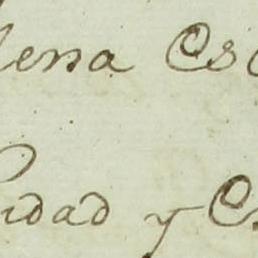 lena Es
idad y C